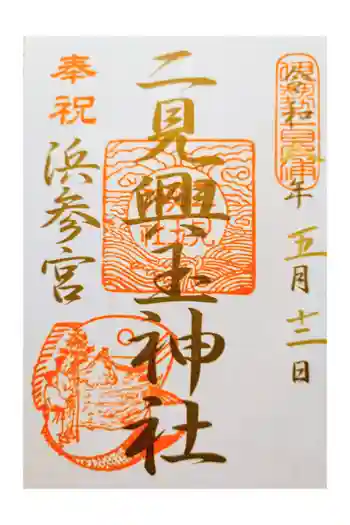 令和元年五月十二日
二見興玉神社
奉祝
浜参宮